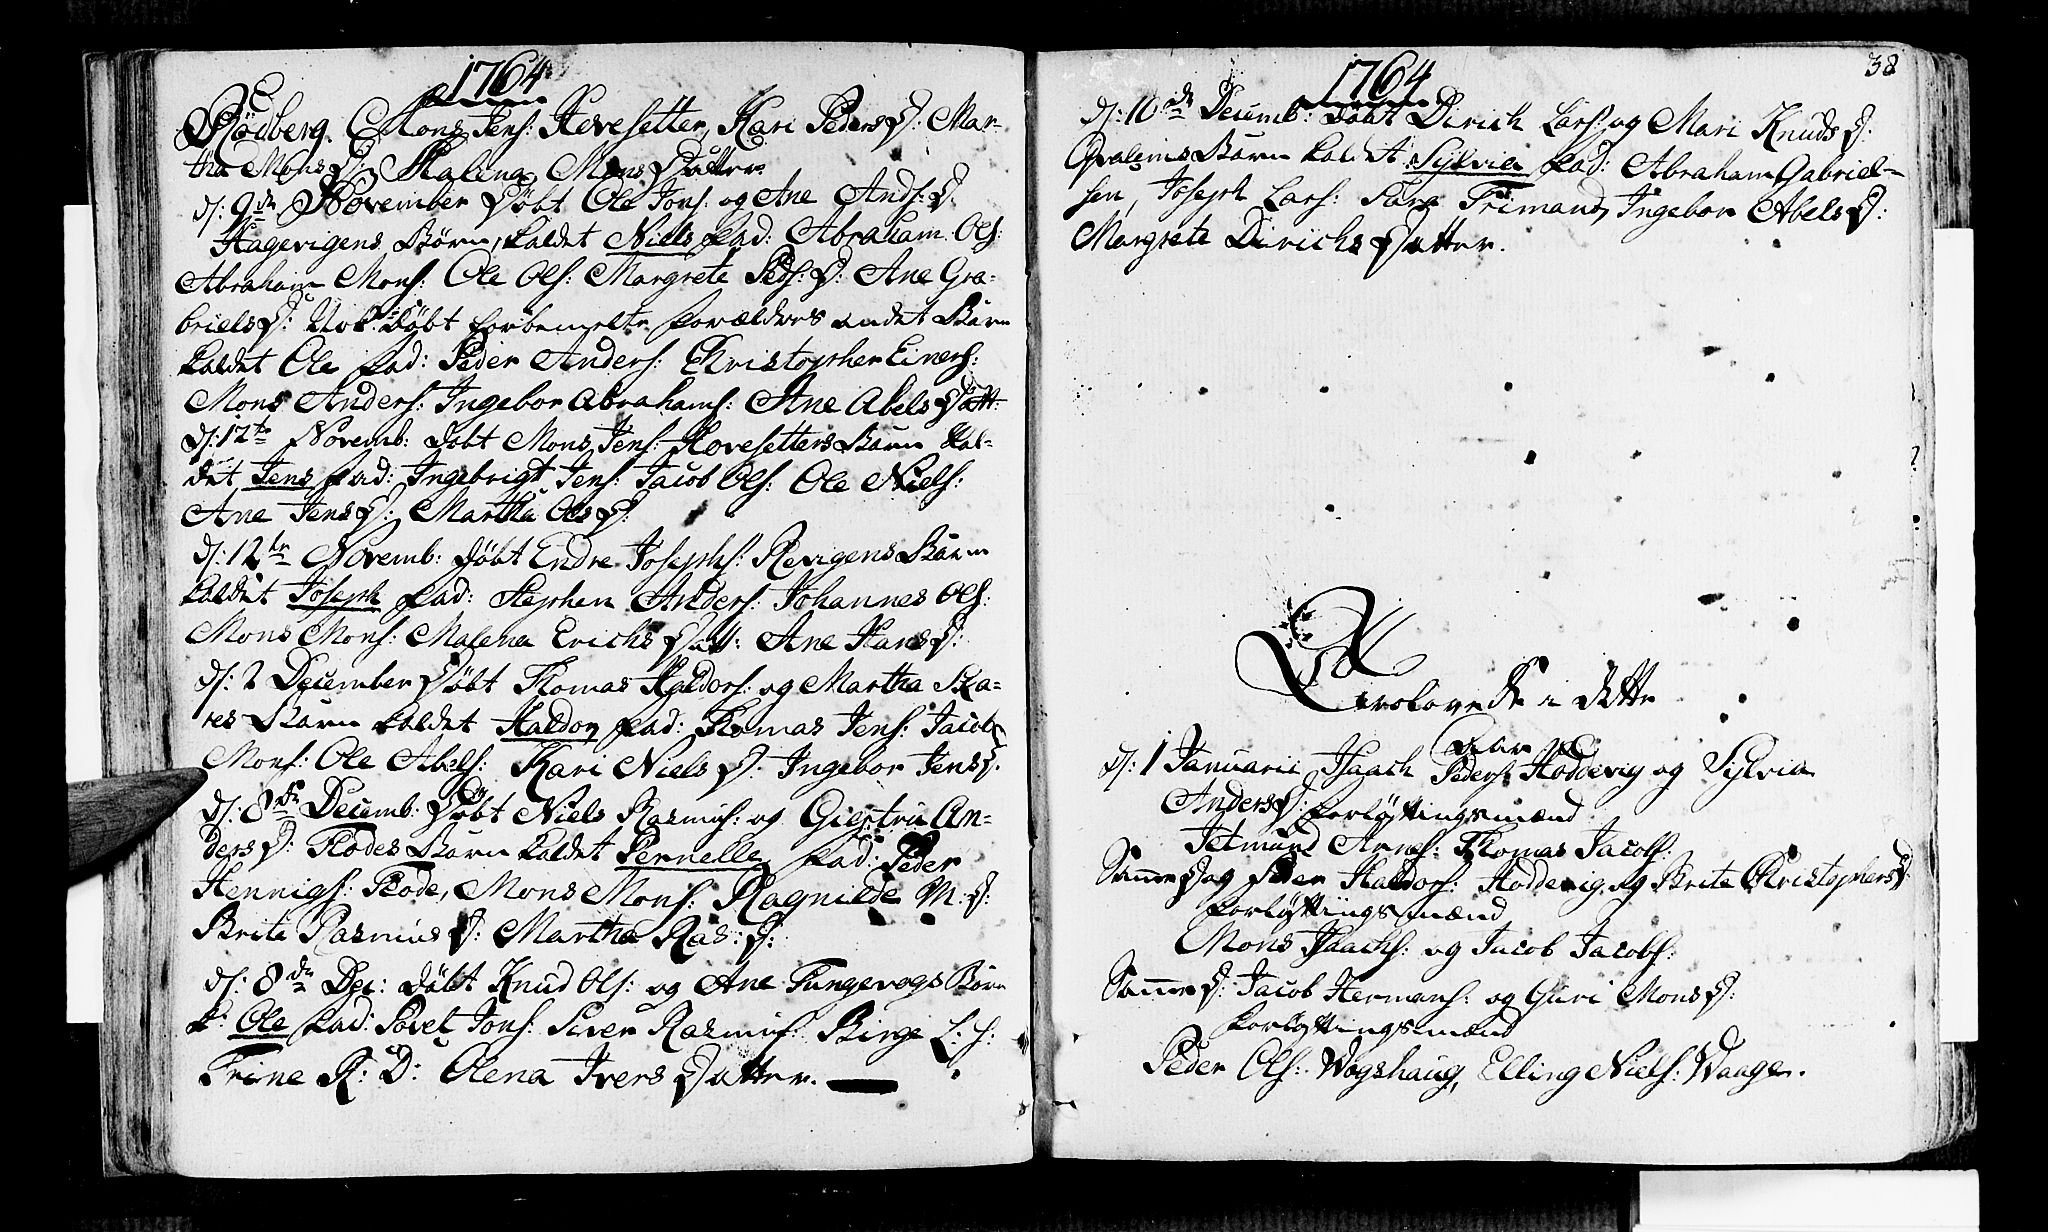 1764
Rödberg. Mons Jens: Hovesetter, Kari PedersD: Mar-
tha MonsD: Malena MonsDatter.
D: 9de November Döbt Ole Jons: og Ane Ands: D:
Hagevigens Börn, kaldet Niels Fad: Abraham Ols:
Abraham Mons: Ole Ols: Margrete Peds: D: Ane Ga-
brielsD: Nok Döbt forbemelte Forældres andet Barn
kaldet Ole Fad: Peder Anders: Christopher Einers:
Mons Anders: Ingebor Abrahams: Ane Abels Datt:
D: 12te Novemb: Döbt Mons Jens: Hovesetters Barn kal-
det Jens Fad: Ingebrigt Jens: Jacob Ols: Ole Niels:
Ane JensD: Martha OlsD:
D: 12te Novemb: Döbt Endre Josephs: Revigens Barn
kaldet Joseph Fad: Stephen Anders: Johannes Ols:
Mons Mons: Malena Erichs Datt: Ane HansD:
D: 2 December Döbt Thomas Haldors: og Martha Ska-
res Barn kaldet Haldor Fad: Thomas Jens: Jacob
Mons: Ole Abels: Kari Niels D: Ingebor JensD.
D: 8de Decemb: Döbt Niels Rasmus: og Giertru An-
dersD: Flodes Barn kaldet Pernelle Fad: Peder
Hennigs: Flode, Mons Mons: Ragnilde M: D:
Brite RasmusD: Martha Ras: D:
D: 8de Dec: Döbt Knud Ols: og Ane Tungevogs Barn
k: Ole Fad: Sovel Jons: Siver Rasmus: Birge L: S:
Trine R: D: Olena Ivers Datter.
1764
38
D: 16de Decemb: Döbt Dirich Lars: og Mari KnudsD:
Barn kaldet Sylvia Fad: Abraham Gabriel-
sen, Joseph Lars: Sara Trimand, Ingebor AbelsD:
Margrete Dirichs Datter.
Trolovede i Dette
Aar
D: 1 Januarii Isaach Peders: Hoddevig og Sylvia
AndersD: Forlöftningsmænd
Jetmund Arnes: Thomas Jacobs:
Samme Dag Peder Haldors: Hoddevig og Brite ChristophersD:
Forlöftningsmænd
Mons Isaachs: og Jacob Jacobs:
Samme D: Jacob Hermans: og Guri MonsD:
Forlöftningsmænd
Peder Ols: Wogshaug, Elling Niels: Waage.